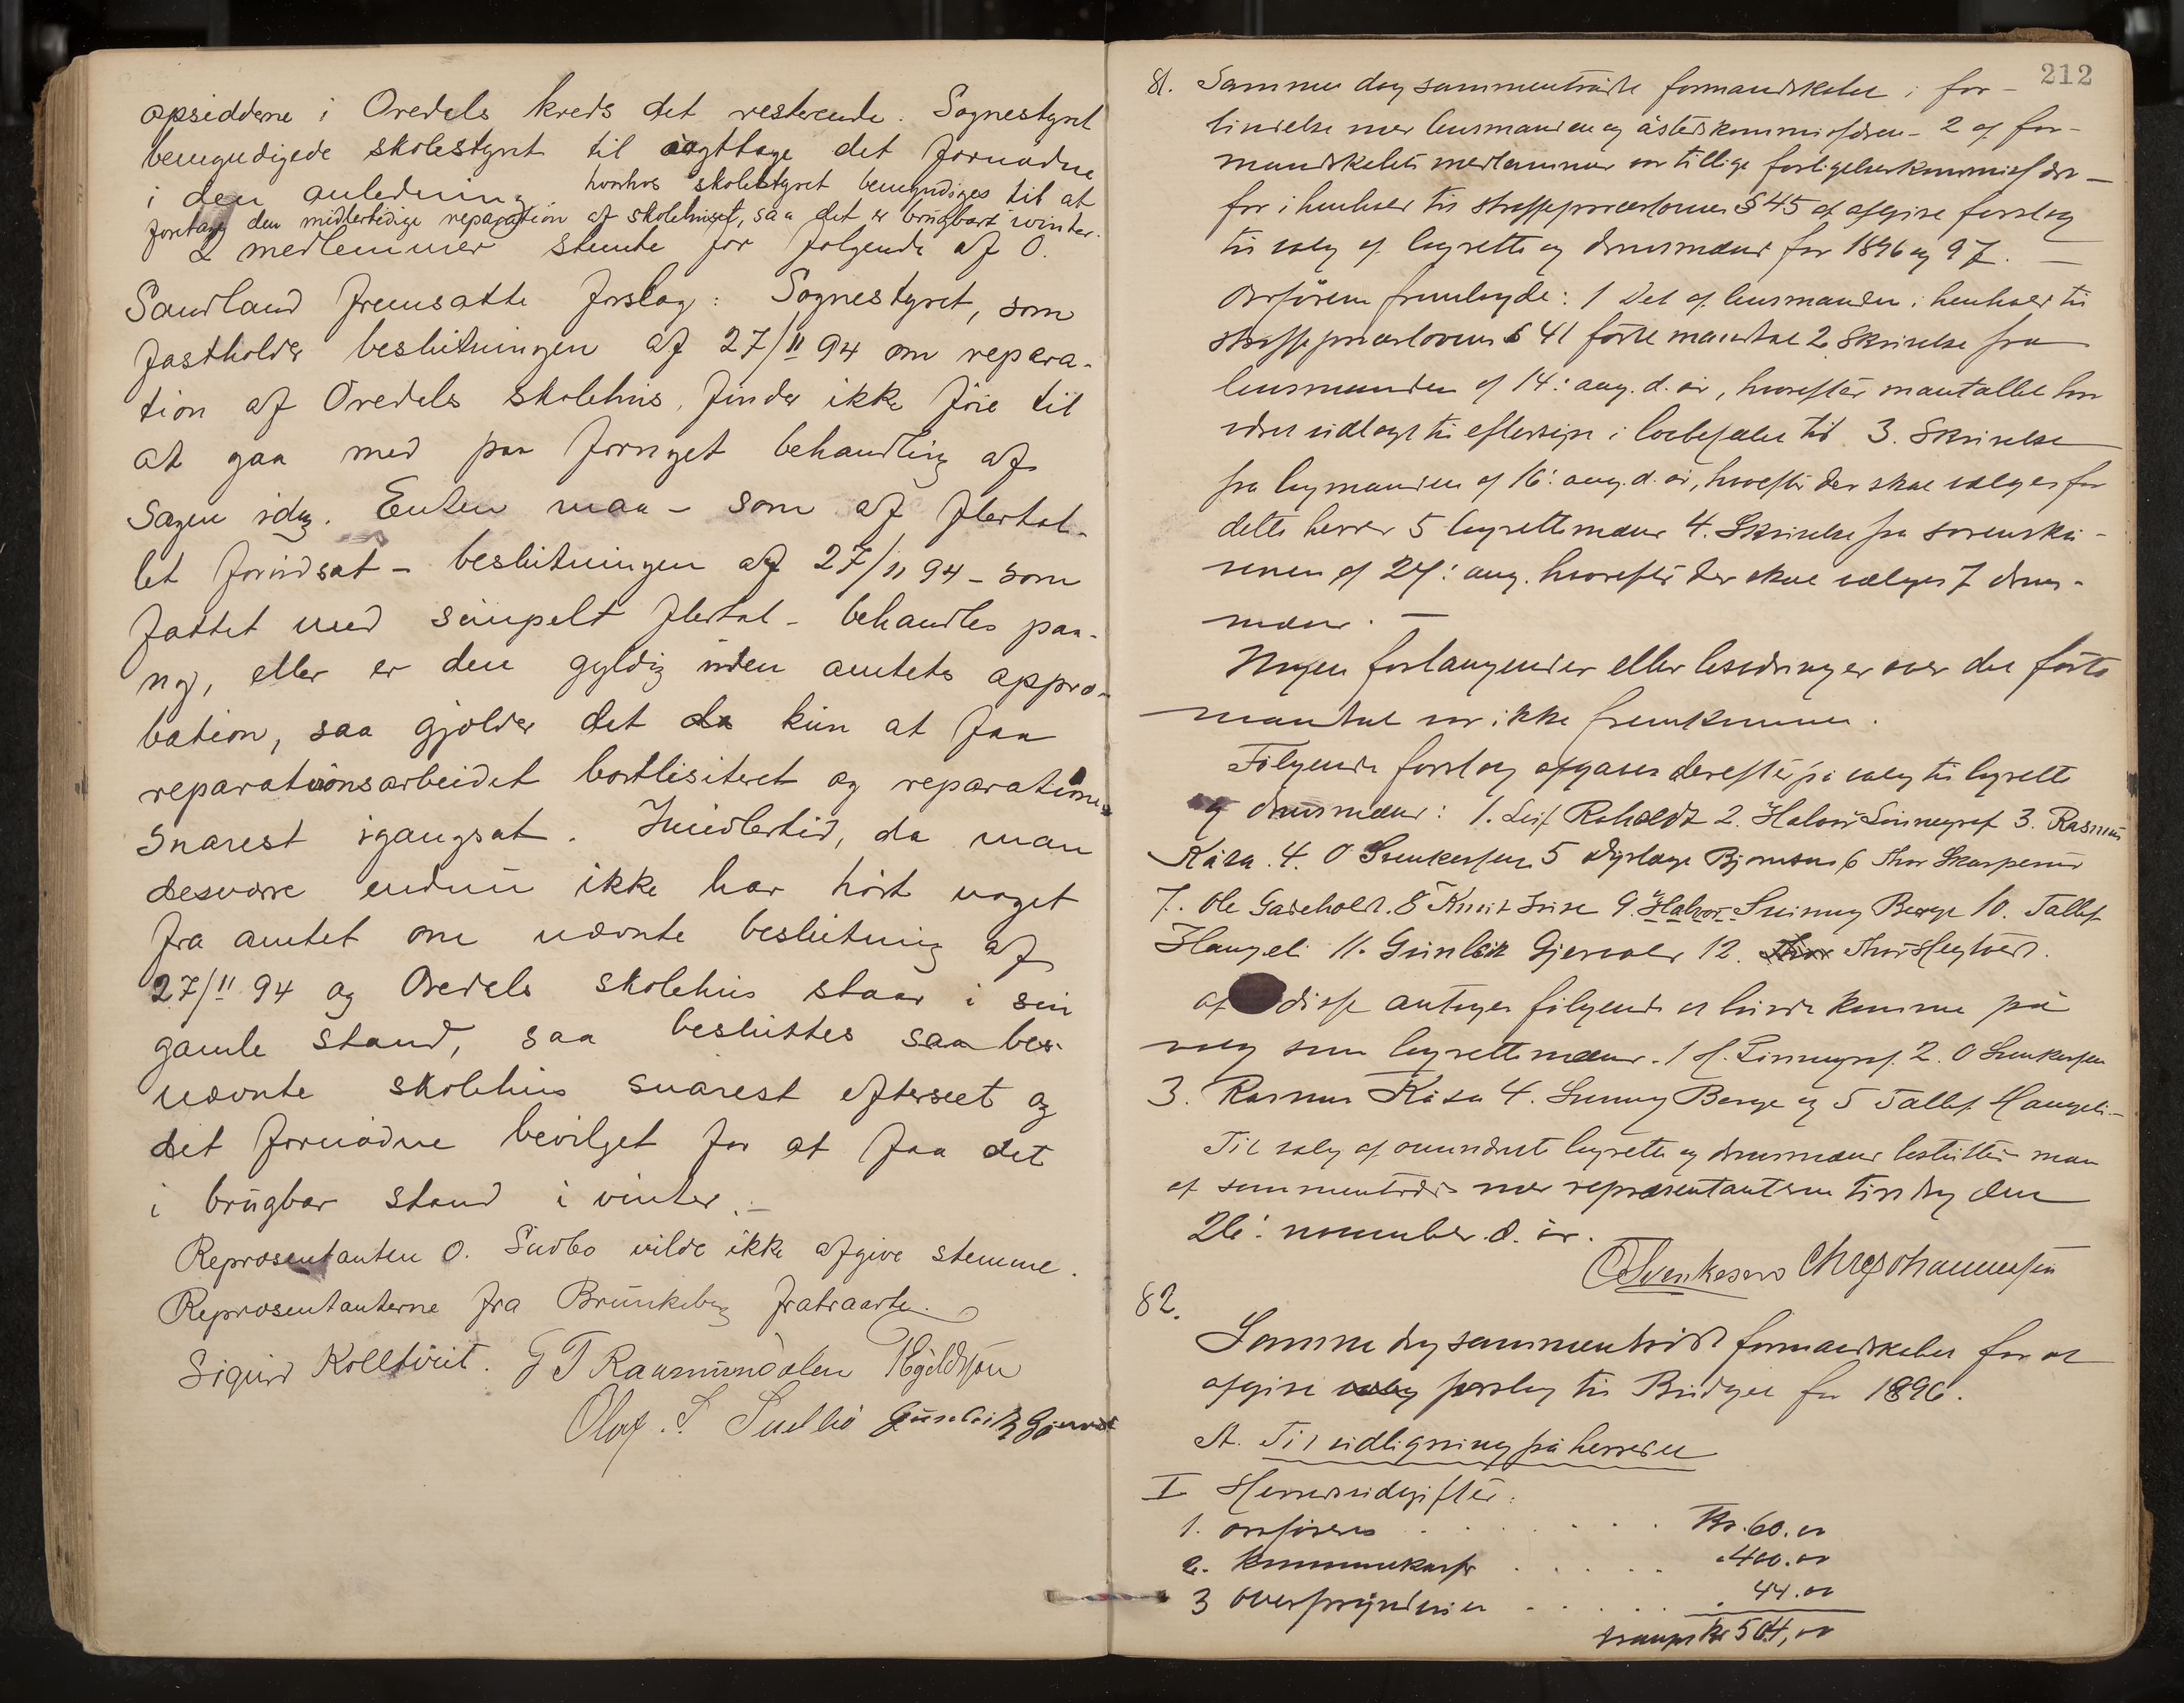 opsidderne i Oredels kreds det resterende. Sognestyret
bemyndigede skolestyret til iagttage det fornødne
i den anledning hvorhos skolestyret bemyndiges til at
foretage den midlertidige reparation af skolehuset, saa det er brugbart i vinter.
2 medlemmer stemte for følgende af O.
Sandland fremsatte forslag: Sognestyret, som
fastholder beslutningen af 27/11 94 om repara-
tion af Oredels skolehus, finder ikke føie til
at gaa med paa fornyet behandling af
sagen idag. Enten maa – som af flertal-
let forudsat – beslutningen af 27/11 94 – som
fattet med simpelt flertal – behandles paa-
ny, eller er den gyldig uden amtets appro-
bation, saa gjælder det da kun at faa
reparationsarbeidet bortlisiteret og reparationen
snarest igangsat. Imidlertid, da man
desværre endnu ikke har hørt noget
fra amtet om nævnte beslutning af
27/11 94 og Oredels skolehus staar i sin
gamle stand, saa besluttes saa bes-
nævnte skolehus snarest efterseet og
det fornødne bevilget for at faa det
i brugbar stand i vinter. –
Repræsentanten O. Sudbø vilde ikke afgive stemme.
Repræsentanterne fra Brunkeberg fratraadte.
Sigurd Kolltveit. G T Raamunddalen
Olaf. S. Sudbö Gunleik Gjervold
212
81. Samme dag sammentraadte formandskabet i for-
bindelse med lensmanden og åstedskommissæren – 2 af for-
mandskabets medlemmer var tillige forligelseskommissærer –
for i henhold til straffeproceslovens § 45 at afgive forslag
til valg af lagrette og domsmænd for 1896 og 97. –
Ordføreren fremlagde: 1 Det af lensmanden i henhold til
straffeproceslovens § 41 førte mandtal 2. Skrivelse fra
lensmanden af 14: aug. d. år, hvorefter mantallet har
været udlagt til eftersyn i lovbefalet tid 3. Skrivelse
fra lagmanden af 16: aug. d. år, hvorefter der skal vælges for
dette herred 5 lagrettemænd 4. Skrivelse fra sorenskri-
veren af 24: aug. hvorefter der skal vælges 7 doms-
mænd. –
Nogen forlangender eller besværinger over det førte
mantal var ikke fremkommen.
Følgende forslag afgaves derefter på valg til lagrette
og domsmænd: 1. Leif Roholdt 2. Halvor Linnegrøf 3. Rasmus
Kåsa. 4. O Svenkesen 5 Bjornson 6 Thor Skarperud
7. Ole Gaseholt. 8 Knut 9. Halvor Sveinung Berge 10. Tallef
Haugeli 11. Gunleik Gjervold 12. Thor
af disse antages følgende at burde komme på
valg som lagrettemænd. 1 H. Linnegrøf. 2. O Svenkesen
3. Rasmus Kåsa 4. Sveinung Berge og 5 Tallef Haugeli –
Til valg af omendnævnte lagrette og domsmænd beslutter man
at sammentræde med repræsentanterne tirsdag den
26: november d. år.
O Svenkesen Chr Johannessen
82.
Samme dag sammentraadte formandskabet for at
afgive forslag til Budget for 1896.
A. Til udligning på herredet
I Herredsudgifter:
1. ordføreren . . . . . Kr. 60.00
2. kommunekassr . . . . . 400.00
3 overformynderier . . . . . 44.00
Kr 504,00